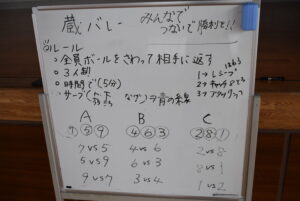 蔵バレー みんなで
つないで勝利を!!
ルール
・全員ボールをさわって相手に返す
・3人制
・時間で(5分)
・サーブ
1→レシーブ
2→
3→アタック
A B C
⑦⑤⑨ ④⑥③ ②⑧①
7vs5 4vs6 2vs8
5vs9 6vs3 8vs1
9vs7 3vs4 1vs2